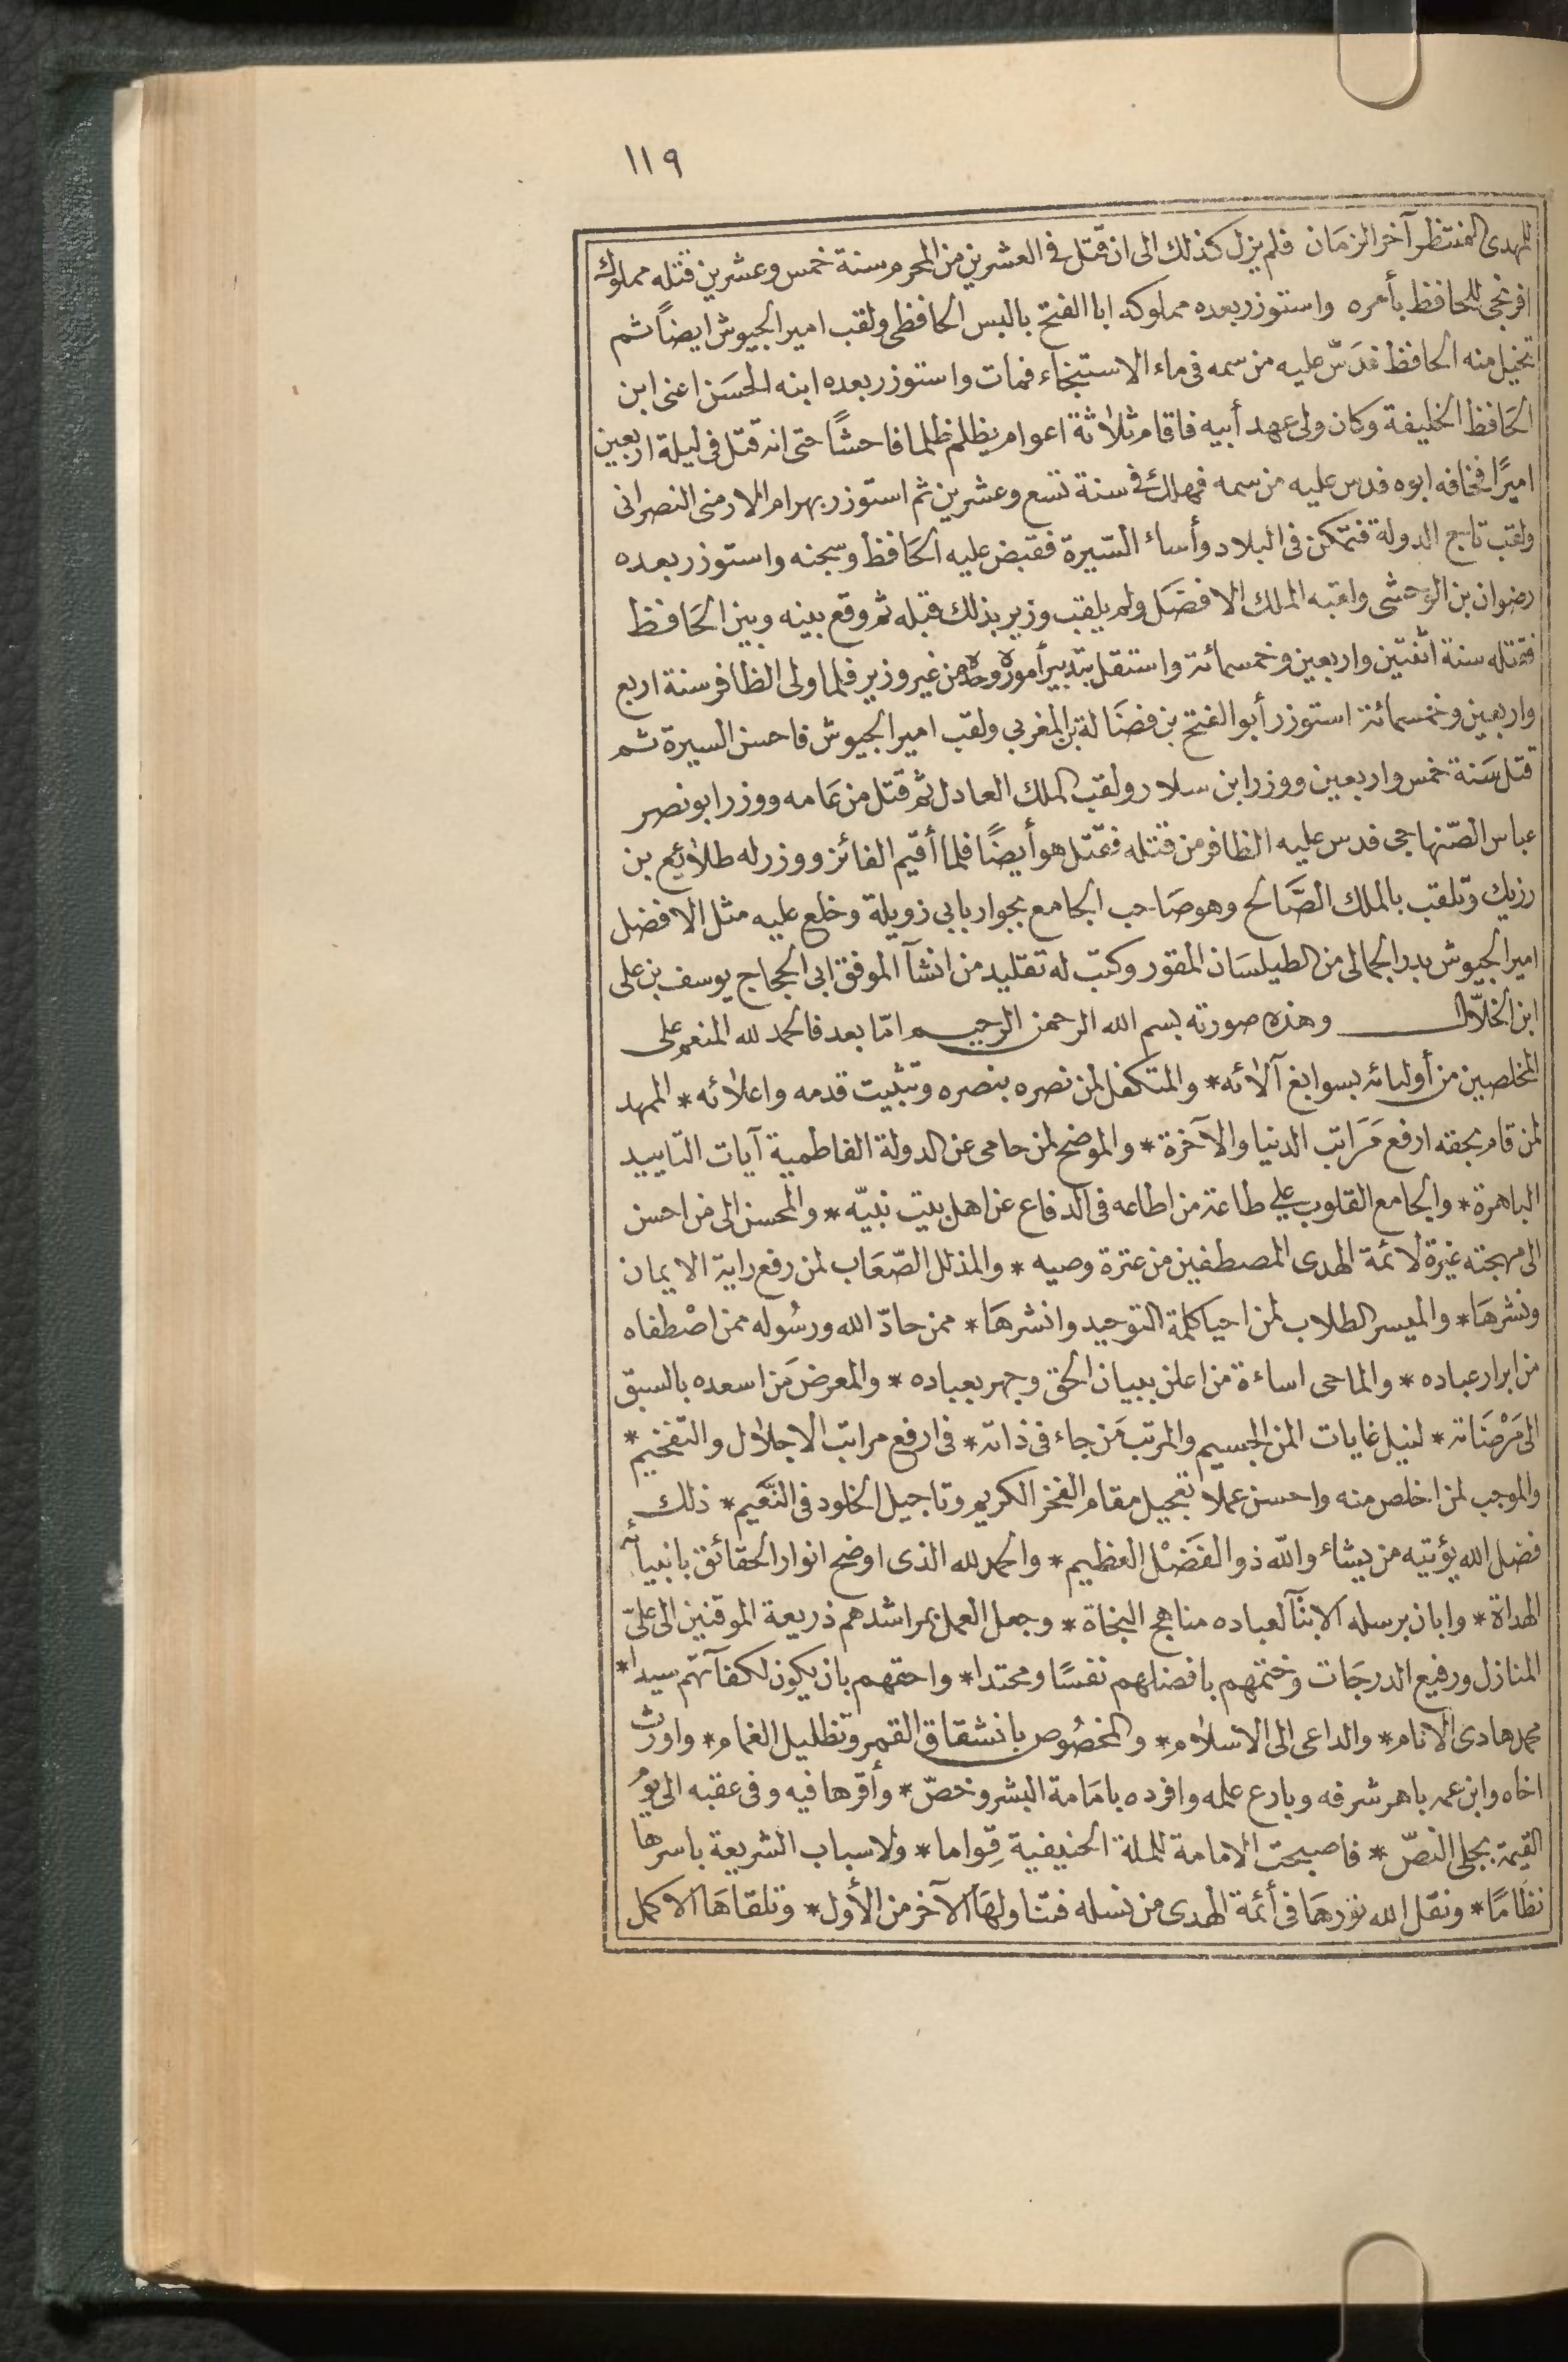 ١١٩
للمهدى المنتظر آخر الزمَان فلم يزل كذلك الى ان قتل فى العشرين من المحرم سنة خمس وعشرين قتله مملوك
افرنجى للحافظ بأمره واستوزر بعده مملوكه ابا الفتح بالبس الحافظى ولقب امير الجيوش ايضاً ثم
تخيل منه الحافظ فدَسّ عليه من سمه فى ماء الاستنجاء فمات واستوزر بعده ابنه الحسَن اعنى ابن
الحَافظ الخليفة وكان ولى عهد أبيه فاقام ثلاثة اعوام يظلم ظلما فاحشًا حتى انه قتل فى ليلة اربعين
اميرًا فخافه ابوه فدس عليه من سمه فهلك فى سنة تسع وعشرين ثم استوزر بهرام الارمنى النصرانى
ولقب تاج الدولة فتمكن فى البلاد وأساء السّيرة فقبض عليه الحَافظ وسجنه واستوزر بعده
رضوان بن الوحشى ولقبه الملك الافضَل ولم يلقب وزير بذلك قبله ثم وقع بينه وبين الحَافظ
فقتله سنة اثنتين واربعين وخمسمائة واستقل بتدبير أموره وحده من غير وزير فلما ولى الظافر سنة اربع
واربعين وخمسمائة استوزر أبو الفتح بن فضَالة بن المغربي ولقب امير الجيوش فاحسن السيرة ثم
قتل سَنة خمس واربعين ووزر ابن سلار ولقب الملك العادل ثم قتل من عَامه ووزر ابو نصر
عباس الصّنهاجى فدس عليه الظافر من قتله فقتل هو أيضًا فلما أقيم الفائز ووزر له طلائع بن
رزيك وتلقب بالملك الصَّالح وهو صَاحب الجامع بجوار بابى زويلة وخلع عليه مثل الافضل
امير الجيوش بدر الجمالى من الطيلسَان المقور وكتب له تقليد من انشآ الموفق ابى الحجاج يوسف بن على
ابن الخلّال وهذه صورته بسم الله الرحمن الرحيم امّا بعد فالحمد لله المنعم على
المخلصين من أوليائه بسوابغ آلائه* والمتكفل لمن نصره بنصره وتثبيت قدمه واعلائه* الممهد
لمن قام بحقه ارفع مَرَاتب الدنيا والآخرة* والموضح لمن حامى عن الدولة الفاطمية آيات التاييد
الباهرة* والجامع القلوب على طاعة من اطاعه فى الدفاع عن اهل بيت نبيّه* والمحسن الى من احسن
الى مهجته غيرة لائمة الهدى المصطفين من عترة وصيه* والمذلل الصّعَاب لمن رفع راية الايمان
ونشرهَا* والميسر الطلاب لمن احيا كلمة التوحيد وانشرهَا* ممن حادّ الله ورسُوله ممن اصْطفاه
من ابرار عباده* والماحى اساءة من اعلن ببيان الحق وجهر بعباده* والمعرض مَن اسعده بالسبق
الى مَرْضَاته* لنيل غايات المن الجسيم والمرتب مَن جاء فى ذاته* فى ارفع مراتب الاجلال والتفخيم*
والموجب لمن اخلص منه واحسن عملا تعجيل مقام الفخر الكريم وتاجيل الخلود فى النَّعيم* ذلك
فضل الله يؤتيه من يشاء والله ذو الفَضْل العظيم* والحمد لله الذى اوضح انوار الحقائق بانبيائه
الهداة* وابان برسله الابنآ لعباده مناهج النجاة* وجعل العمل بمراشدهم ذريعة الموقنين الى علىّ
المنازل ورفيع الدرجَات وختمهم بافضلهم نفسًا ومحتدا* واحقهم بان يكون لكفآتهم سيدا*
محمد هادى الانام* والداعى الى الاسلام* والمخصُوص بانشقاق القمر وتظليل الغمام* واورث
اخاه وابن عمه باهر شرفه وبادع علمه وافرده بامَامة البشر وخصّ* وأقرها فيه وفى عقبه الى يوُ
القيمة بجلى النصّ* فاصبحت الامامة للملة الحنيفية قِواما* ولاسباب الشريعة باسرها
نظَامًا* ونقل الله نورهَا فى أئمة الهدى من نسله فتناولهَا الآخر من الأول* وتلقاهَا الاكمل